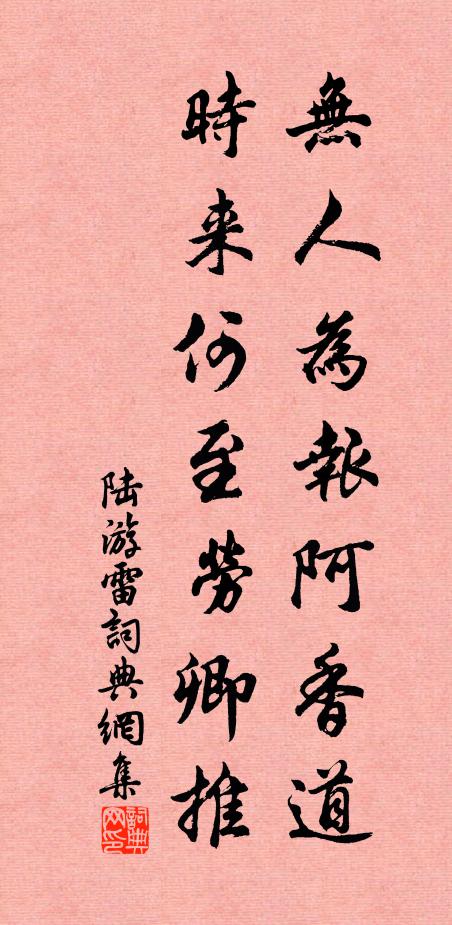 無人為報阿香道
時来何至勞卿推
陆游雷詞典網集
詞典网印